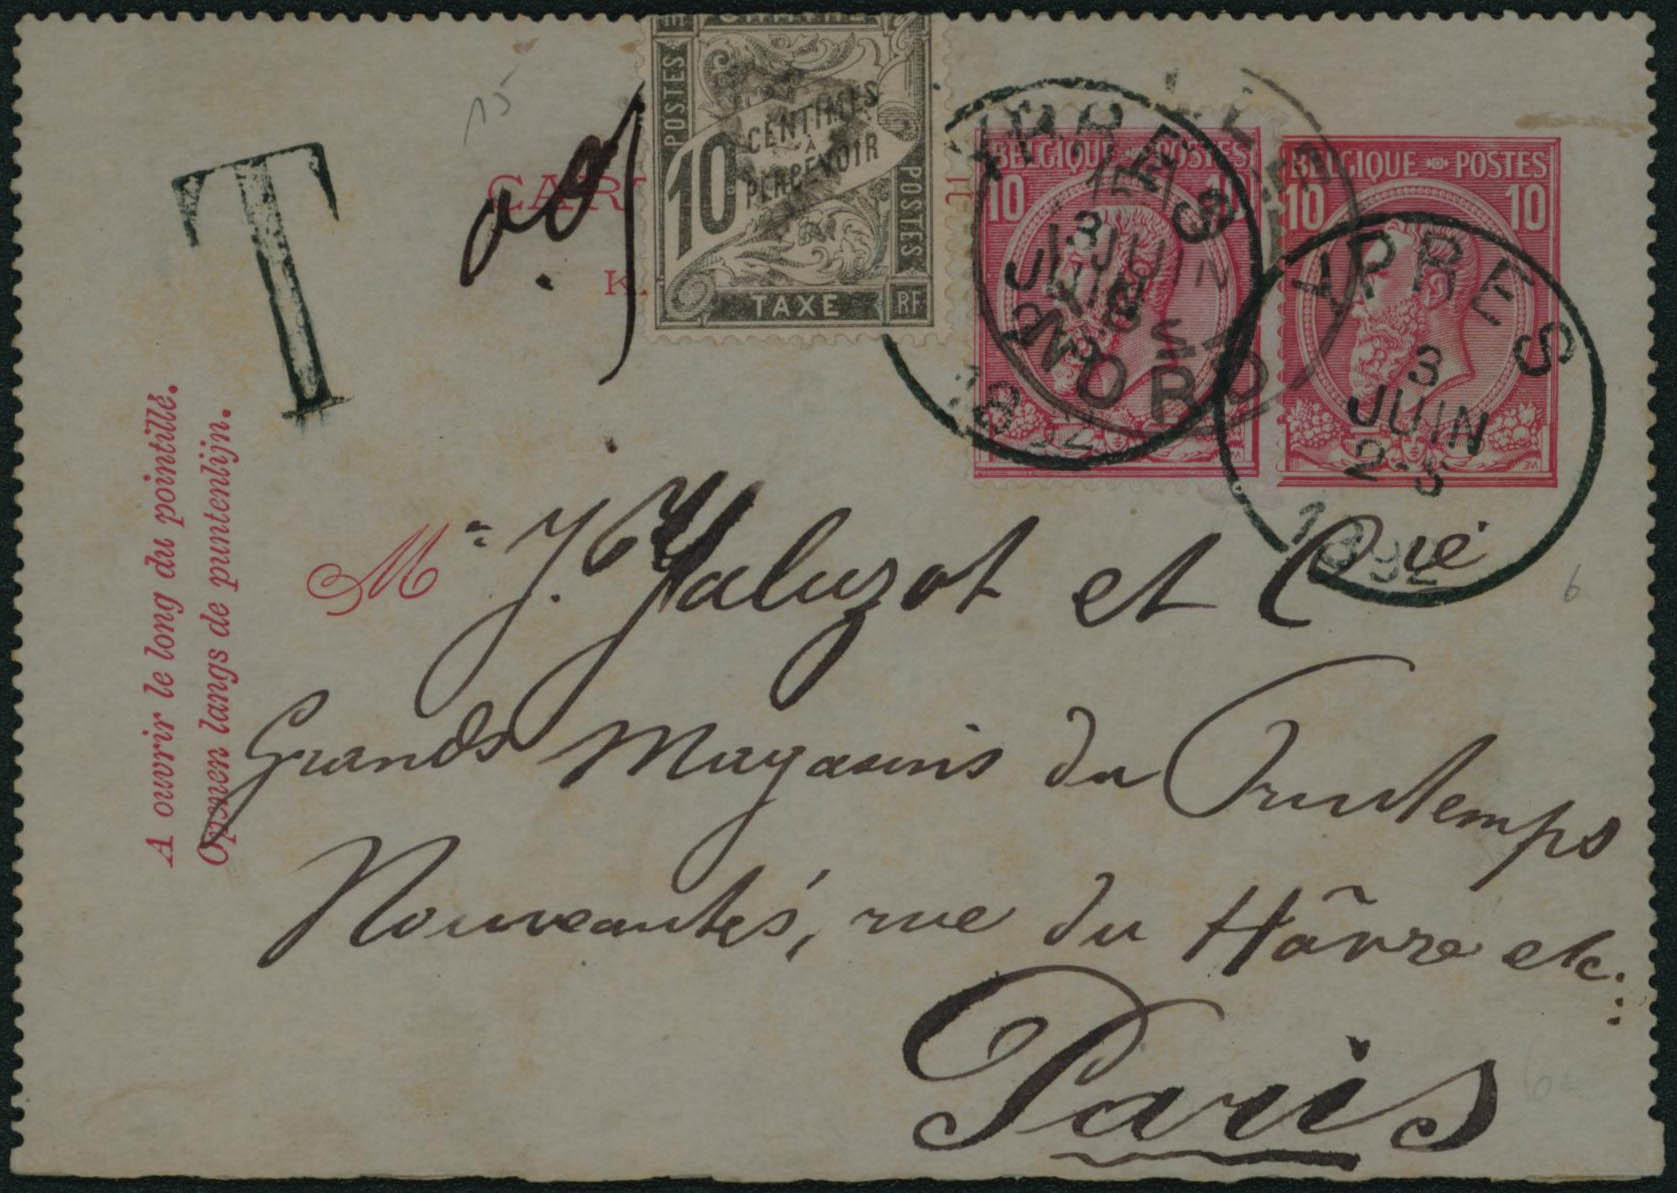 15
T
0.05
CAR
K
CHIFFRE
POSTES
10 CENTIMES
À
PERCEVOIR
POSTES
TAXE
RF
BELGIQUE POSTES
10 10
BELGIQUE POSTES
10 10
YPRES
JUIN
NORD
YPRES
3
JUIN
2-5
1892
A ouvrir le long du pointillé.
Openen langs de puntenlijn.
M
J. Jaluzot et Cie
Grands Magasins du Printemps
Nouveautés, rue du Hâvre etc.
Paris
6